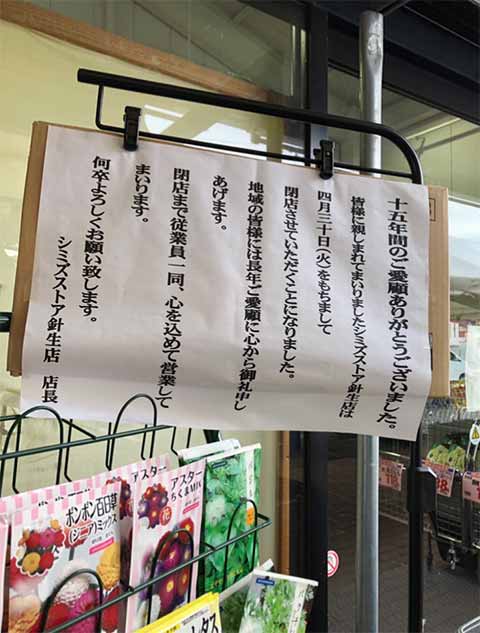 十五年間のご愛顧ありがとうございました。
皆様に親しまれてまいりましたシミズストア針生店は
四月三十日(火)をもちまして
閉店させていただくことになりました。
地域の皆様には長年ご愛顧に心から御礼申し
あげます。
閉店まで従業員一同、心を込めて営業して
まいります。
何卒よろしくお願い致します。
シミズストア針生店 店長
ポンポン百日草
(ジニア)ミックス
アスター
アスター